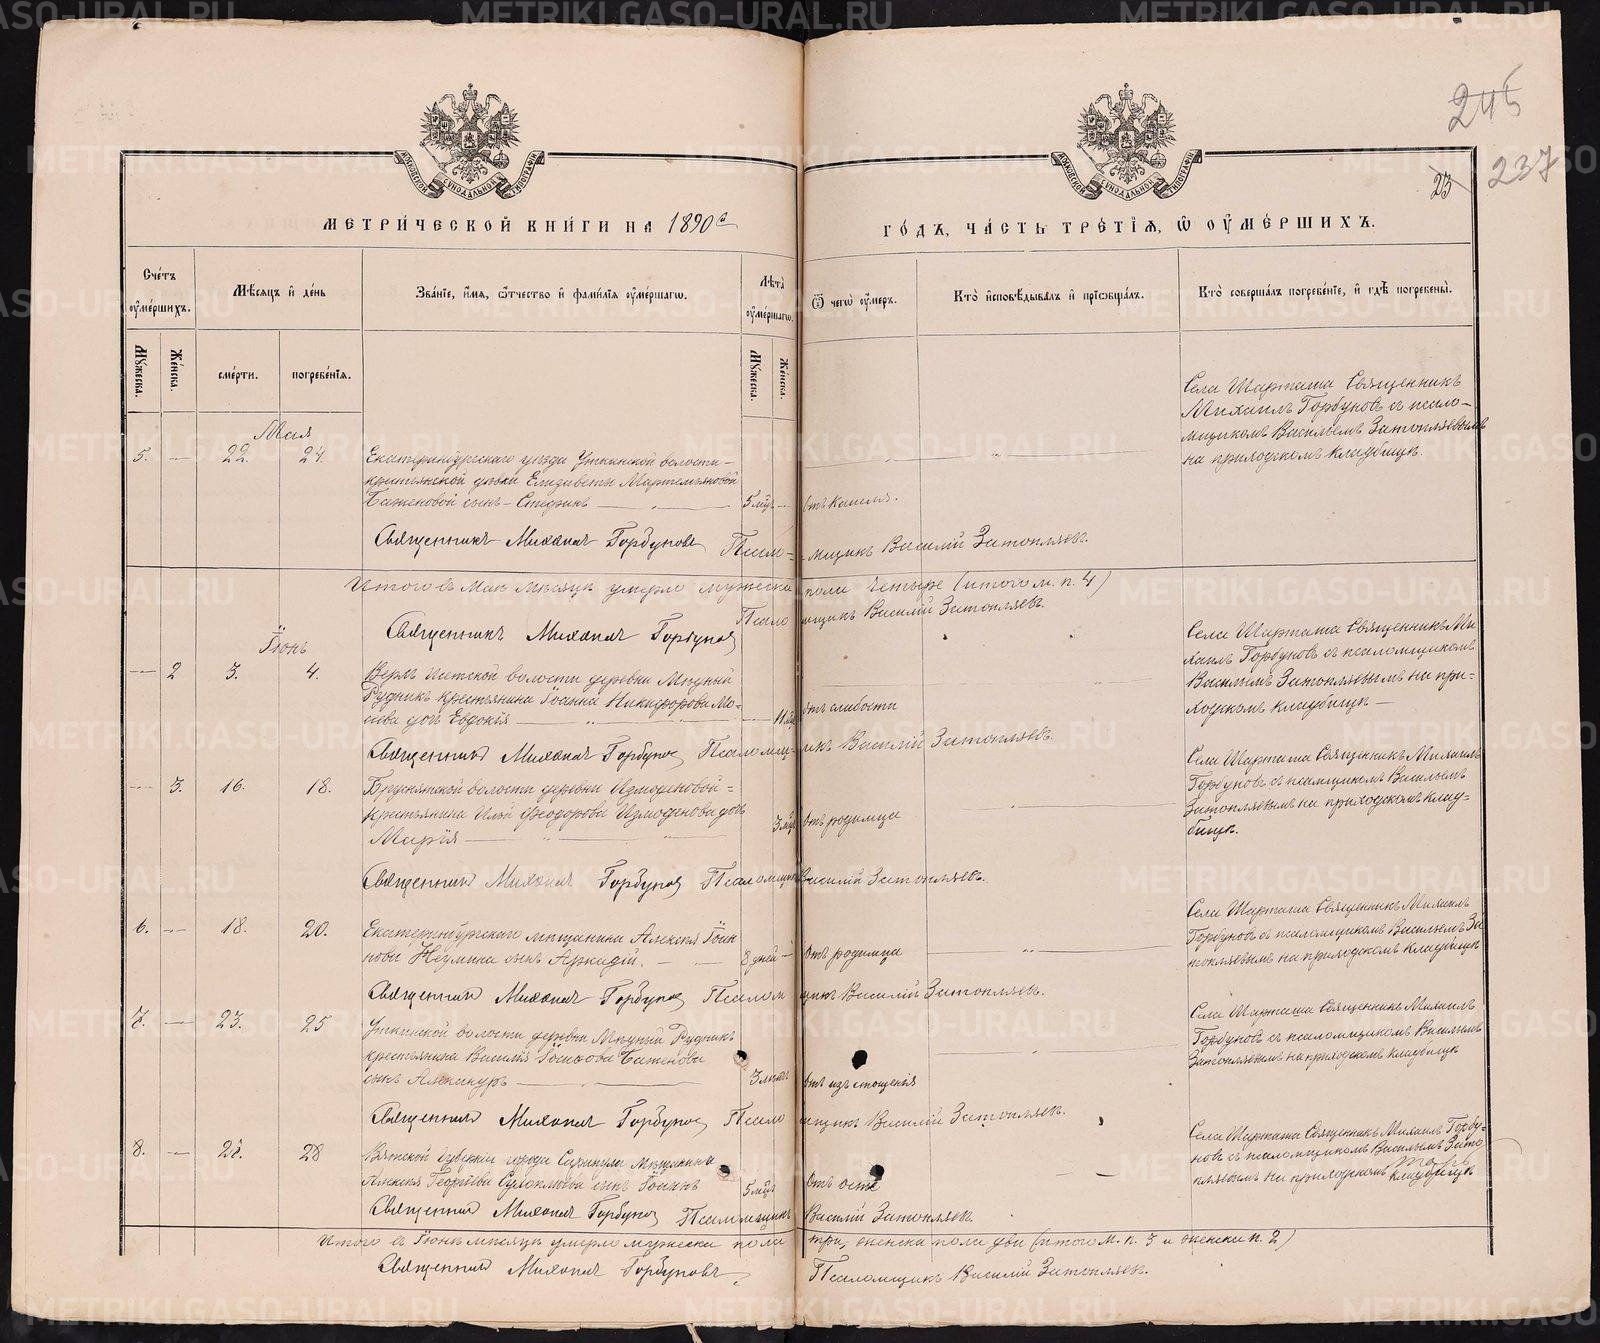 245
237
23
МЕТРИ́ЧЕСКОЙ КНИ́ГИ НА 1890 й
ГО́ДЪ, ЧА́СТЬ ТРЕ́ТІЯ, Ѿ ОУМЕ́РШИХЪ.
Сче́тъ оуме́ршихъ.
Мѣ́сяцъ и де́нь
Зва́ніе, и́мя, о́тчество и фами́лія оуме́ршагѡ.
Лѣ́та оуме́ршагѡ.
Ѿ чегѡ̀ о́умеръ.
Кто̀ исповѣ́дывалъ и пріѡбща́лъ.
Кто̀ соверша́лъ погребе́ніе, и гдѣ̀ погребены̀.
Му́жеска.
Же́нска.
сме́рти.
погребе́нія.
Му́жеска.
Же́нска.
Мая
5. — 22. 24. Екатеринбургскаго уѣзда Уткинской волости —
крестьянской дѣвки Елизаветы Мартемьяновой
Баженовой сынъ — Стефанъ — 5 мѣс — отъ кашля.
Села Шарташа Священникъ
Михаилъ Горбуновъ съ псало-
мщикомъ Васильемъ Затопляевымъ
на приходскомъ кладбищѣ.
Священникъ Михаилъ Горбуновъ Псаломщикъ Василій Затопляевъ.
Итого въ Маѣ мѣсяцѣ умерло мужеска пола четыре (итого м. п. 4)
Священникъ Михаилъ Горбуновъ Псаломщикъ Василій Затопляевъ.
Іюнь
— 2 3. 4. Верхъ Исетской волости деревни Мѣдный
Рудникъ крестьянина Іоанна Никифорова
дочь Евдокія — отъ слабости
Села Шарташа Священникъ Ми-
хаилъ Горбуновъ съ псаломщикомъ
Васильемъ Затопляевымъ на при-
ходскомъ кладбищѣ —
Священникъ Михаилъ Горбуновъ Псаломщикъ Василій Затопляевъ.
— 3. 16. 18. волости деревни Измоденовой —
крестьянина Ильи Ѳеодорова Измоденова дочь
Марія — 3 мѣс отъ родимца
Села Шарташа Священникъ Михаилъ
Горбуновъ съ псаломщикомъ Васильемъ
Затопляевымъ на приходскомъ клад-
бищѣ.
Священникъ Михаилъ Горбуновъ Псаломщикъ Василій Затопляевъ.
6. — 18. 20. Екатеринбургскаго мѣщанина Алексѣя Іоан
нова сынъ Аркадій. — 8 дней — отъ родимца
Села Шарташа Священникъ Михаилъ
Горбуновъ съ псаломщикомъ Васильемъ За
топляевымъ на приходскомъ кладбищѣ
Священникъ Михаилъ Горбуновъ Псаломщикъ Василій Затопляевъ.
7. — 23. 25 Уткинской волости деревни Мѣдный Рудникъ
крестьянина Василія Баженова
сынъ Александръ — 3 лѣтъ отъ истощенія
Села Шарташа Священникъ Михаилъ
Горбуновъ съ псаломщикомъ Васильемъ
Затопляевымъ на приходскомъ кладбищѣ
Священникъ Михаилъ Горбуновъ Псаломщикъ Василій Затопляевъ.
8. — 28 Вятской губерніи города Сарапула мѣщанина
Алексѣя Георгіева сынъ Іоаннъ 5 мѣс отъ оспы
Села Шарташа Священникъ Михаилъ Горбу-
новъ съ псаломщикомъ Васильемъ Зато
пляевымъ на приходскомъ кладбищѣ
Священникъ Михаилъ Горбуновъ Псаломщикъ Василій Затопляевъ.
Итого въ Іюнѣ мѣсяцѣ умерло мужеска пола три, женска пола два (итого м. п. 3 и женска п. 2)
Священникъ Михаилъ Горбуновъ Псаломщикъ Василій Затопляевъ.
METRIKI.GASO-URAL.RU